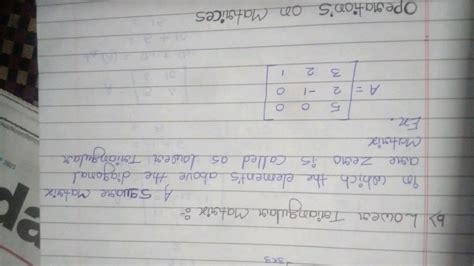 3x3
b) Lower Triangular Matrix :-
A square matrix
in which the elements above the diagonal
are zero is called as lower Triangular
Matrix
Ex.
5 0 0
A = 2 -1 0
3 2 1
Operation's on Matrices